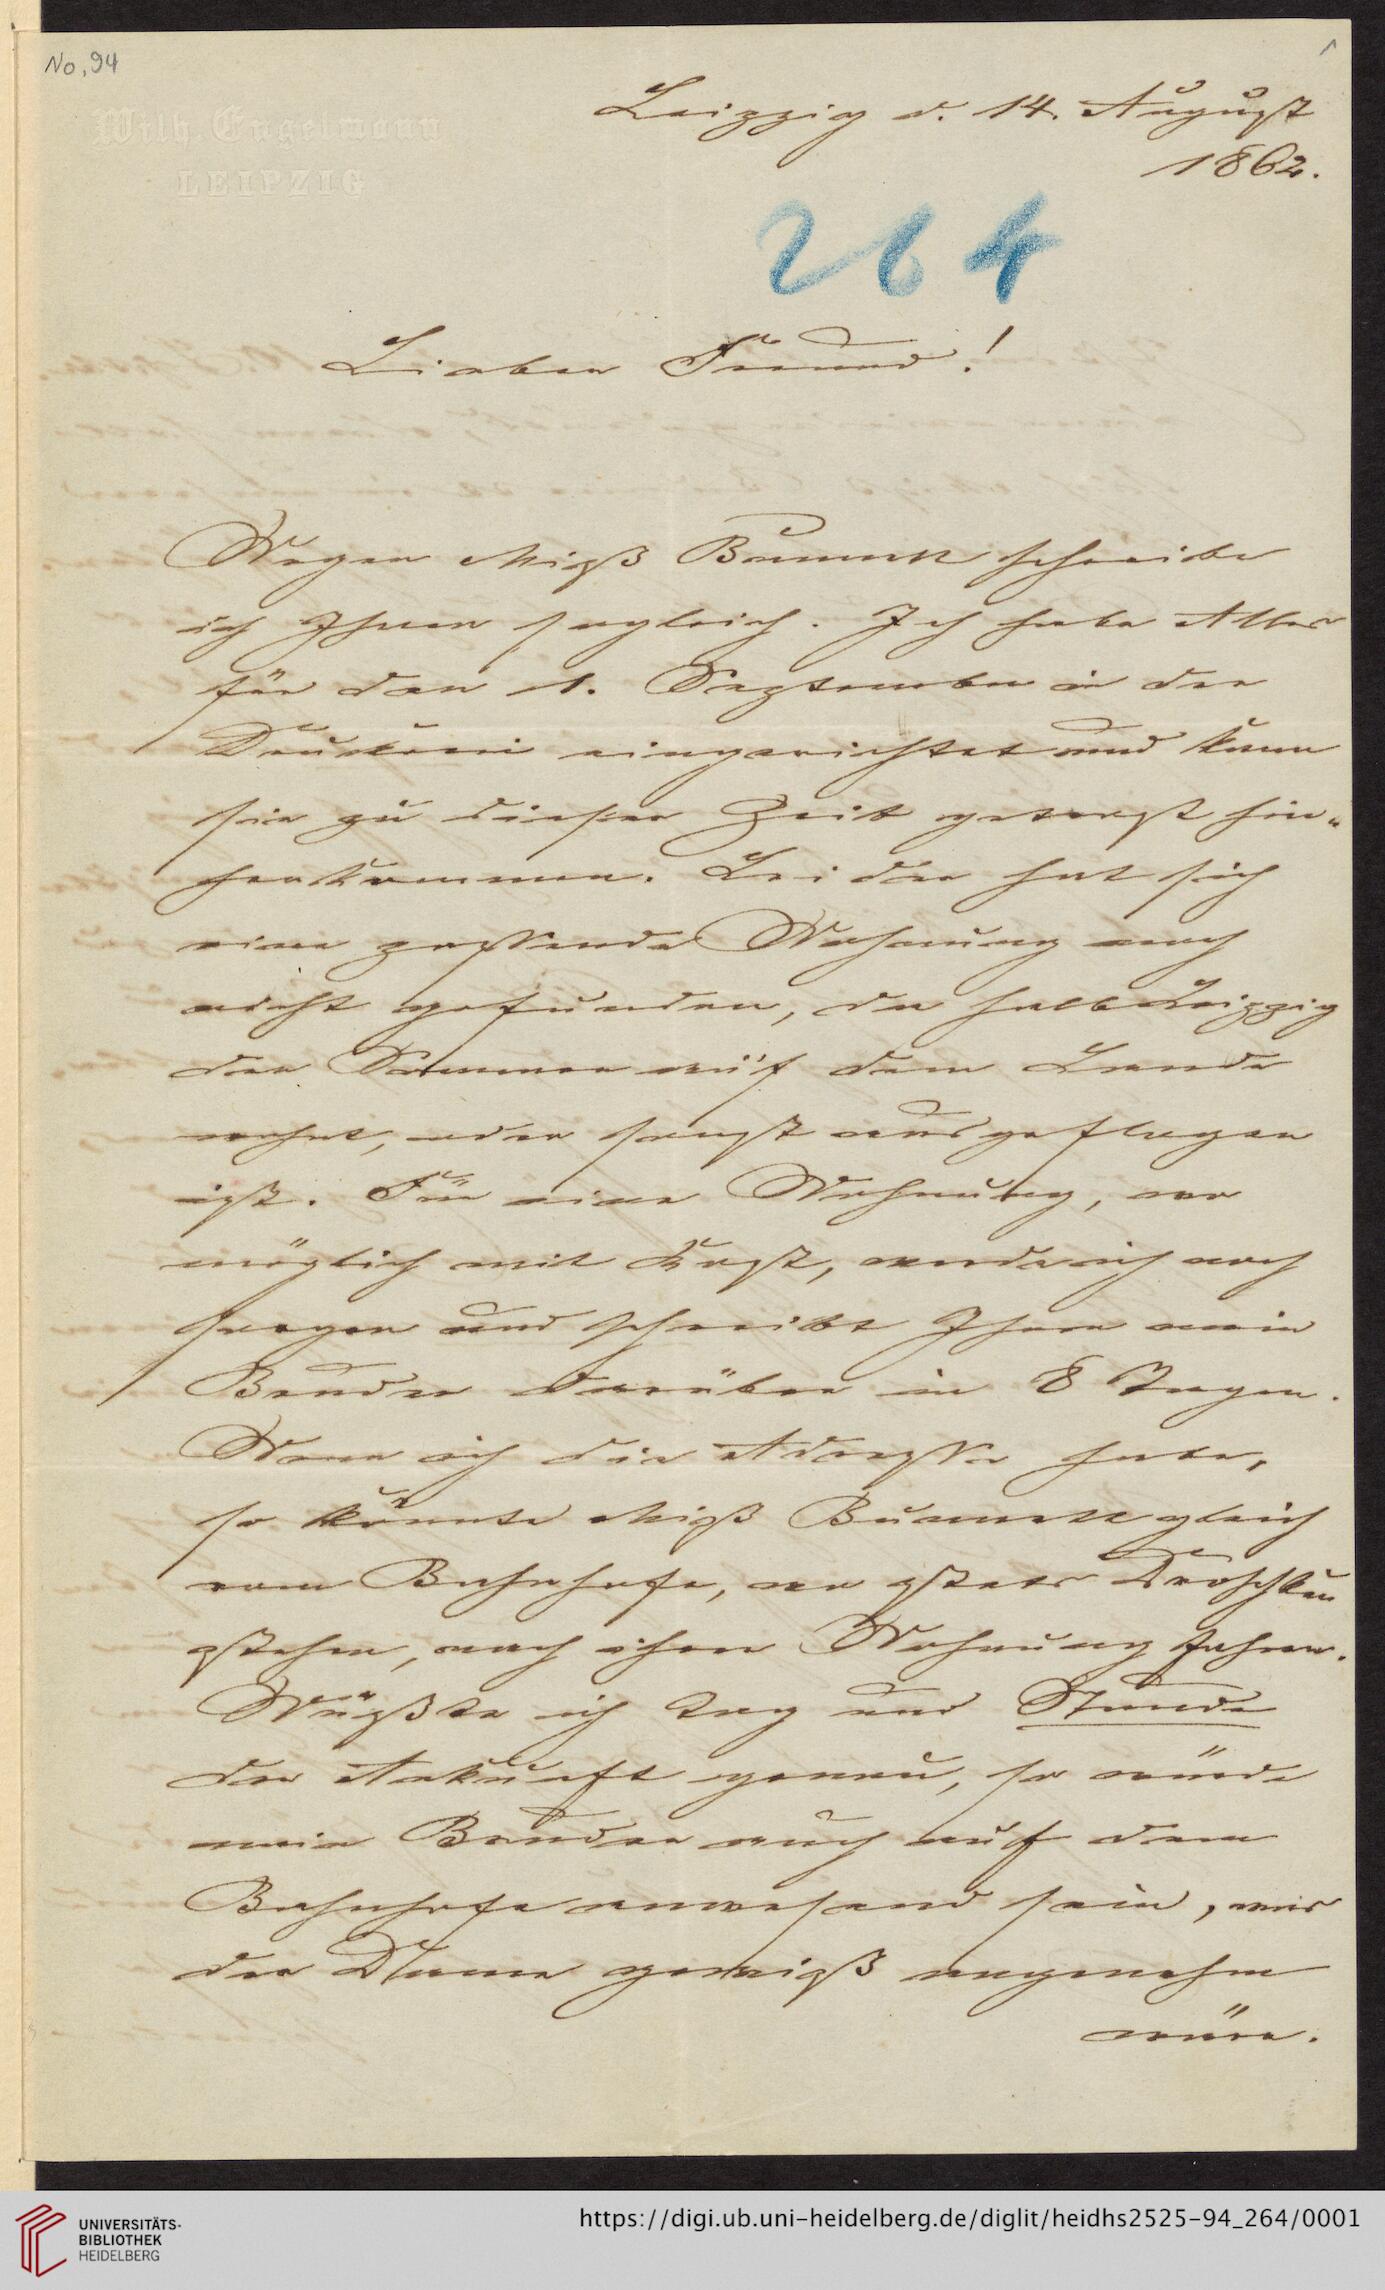 No, 94
1
Wilh. Engelmann
LEIPZIG
Leipzig d. 14. August
1862.
264
Lieber Freund!
Wegen Miß Bunnett schreibe
ich Ihnen sogleich. Ich habe Alles
für den 1. September in der
Druckerei eingerichtet und kann
sie zu dieser Zeit getrost hier-
herkommen. Leider hat sich
eine passende Wohnung noch
nicht gefunden, da halb Leipzig
den Sommer auf dem Lande
wohnt, oder sonst ausgeflogen
ist. Für eine Wohnung, wo
möglich mit Kost, werde ich noch
sorgen und schreibt Ihnen mein
Bruder darüber in 8 Tagen.
Wenn ich die Adresse habe,
so könnte Miß Bunnett gleich
vom Bahnhofe, wo stets Droschken
stehen, nach ihrer Wohnung fahren.
Wüßte ich Tag und Stunde
der Ankunft genau, so würde
mein Bruder auch auf dem
Bahnhofe anwesend sein, was
der Dame gewiß angenehm
wäre.
UNIVERSITÄTS-
BIBLIOTHEK
HEIDELBERG
https://digi.ub.uni-heidelberg.de/diglit/heidhs2525-94_264/0001